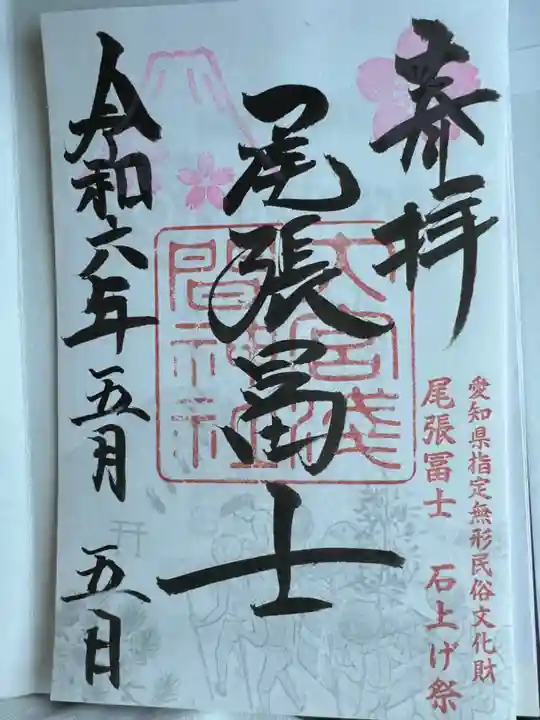 奉拝
愛知県指定無形民俗文化財
尾張冨士 石上げ祭
尾張冨士
大宮浅
間神社
令和六年 五月 五日